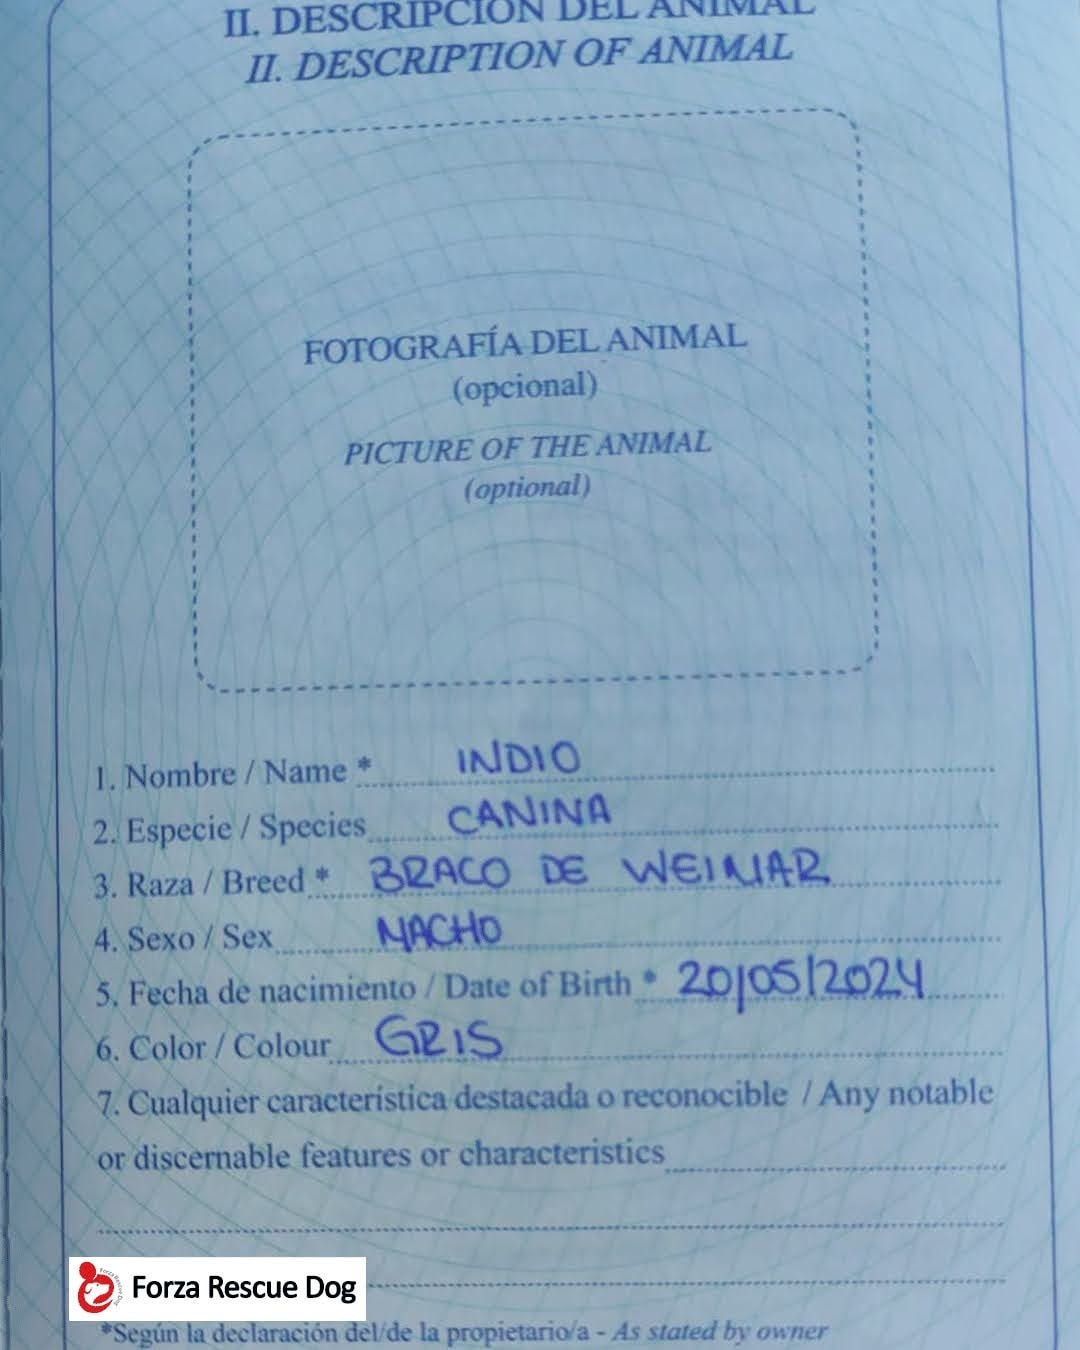 II. DESCRIPCIÓN DEL ANIMAL
II. DESCRIPTION OF ANIMAL
FOTOGRAFÍA DEL ANIMAL
(opcional)
PICTURE OF THE ANIMAL
(optional)
1. Nombre / Name * INDIO
2. Especie / Species CANINA
3. Raza / Breed * BRACO DE WEIMAR
4. Sexo / Sex MACHO
5. Fecha de nacimiento / Date of Birth * 20/05/2024
6. Color / Colour GRIS
7. Cualquier característica destacada o reconocible / Any notable
or discernable features or characteristics
Forza Rescue Dog
*Según la declaración del/de la propietario/a - As stated by owner